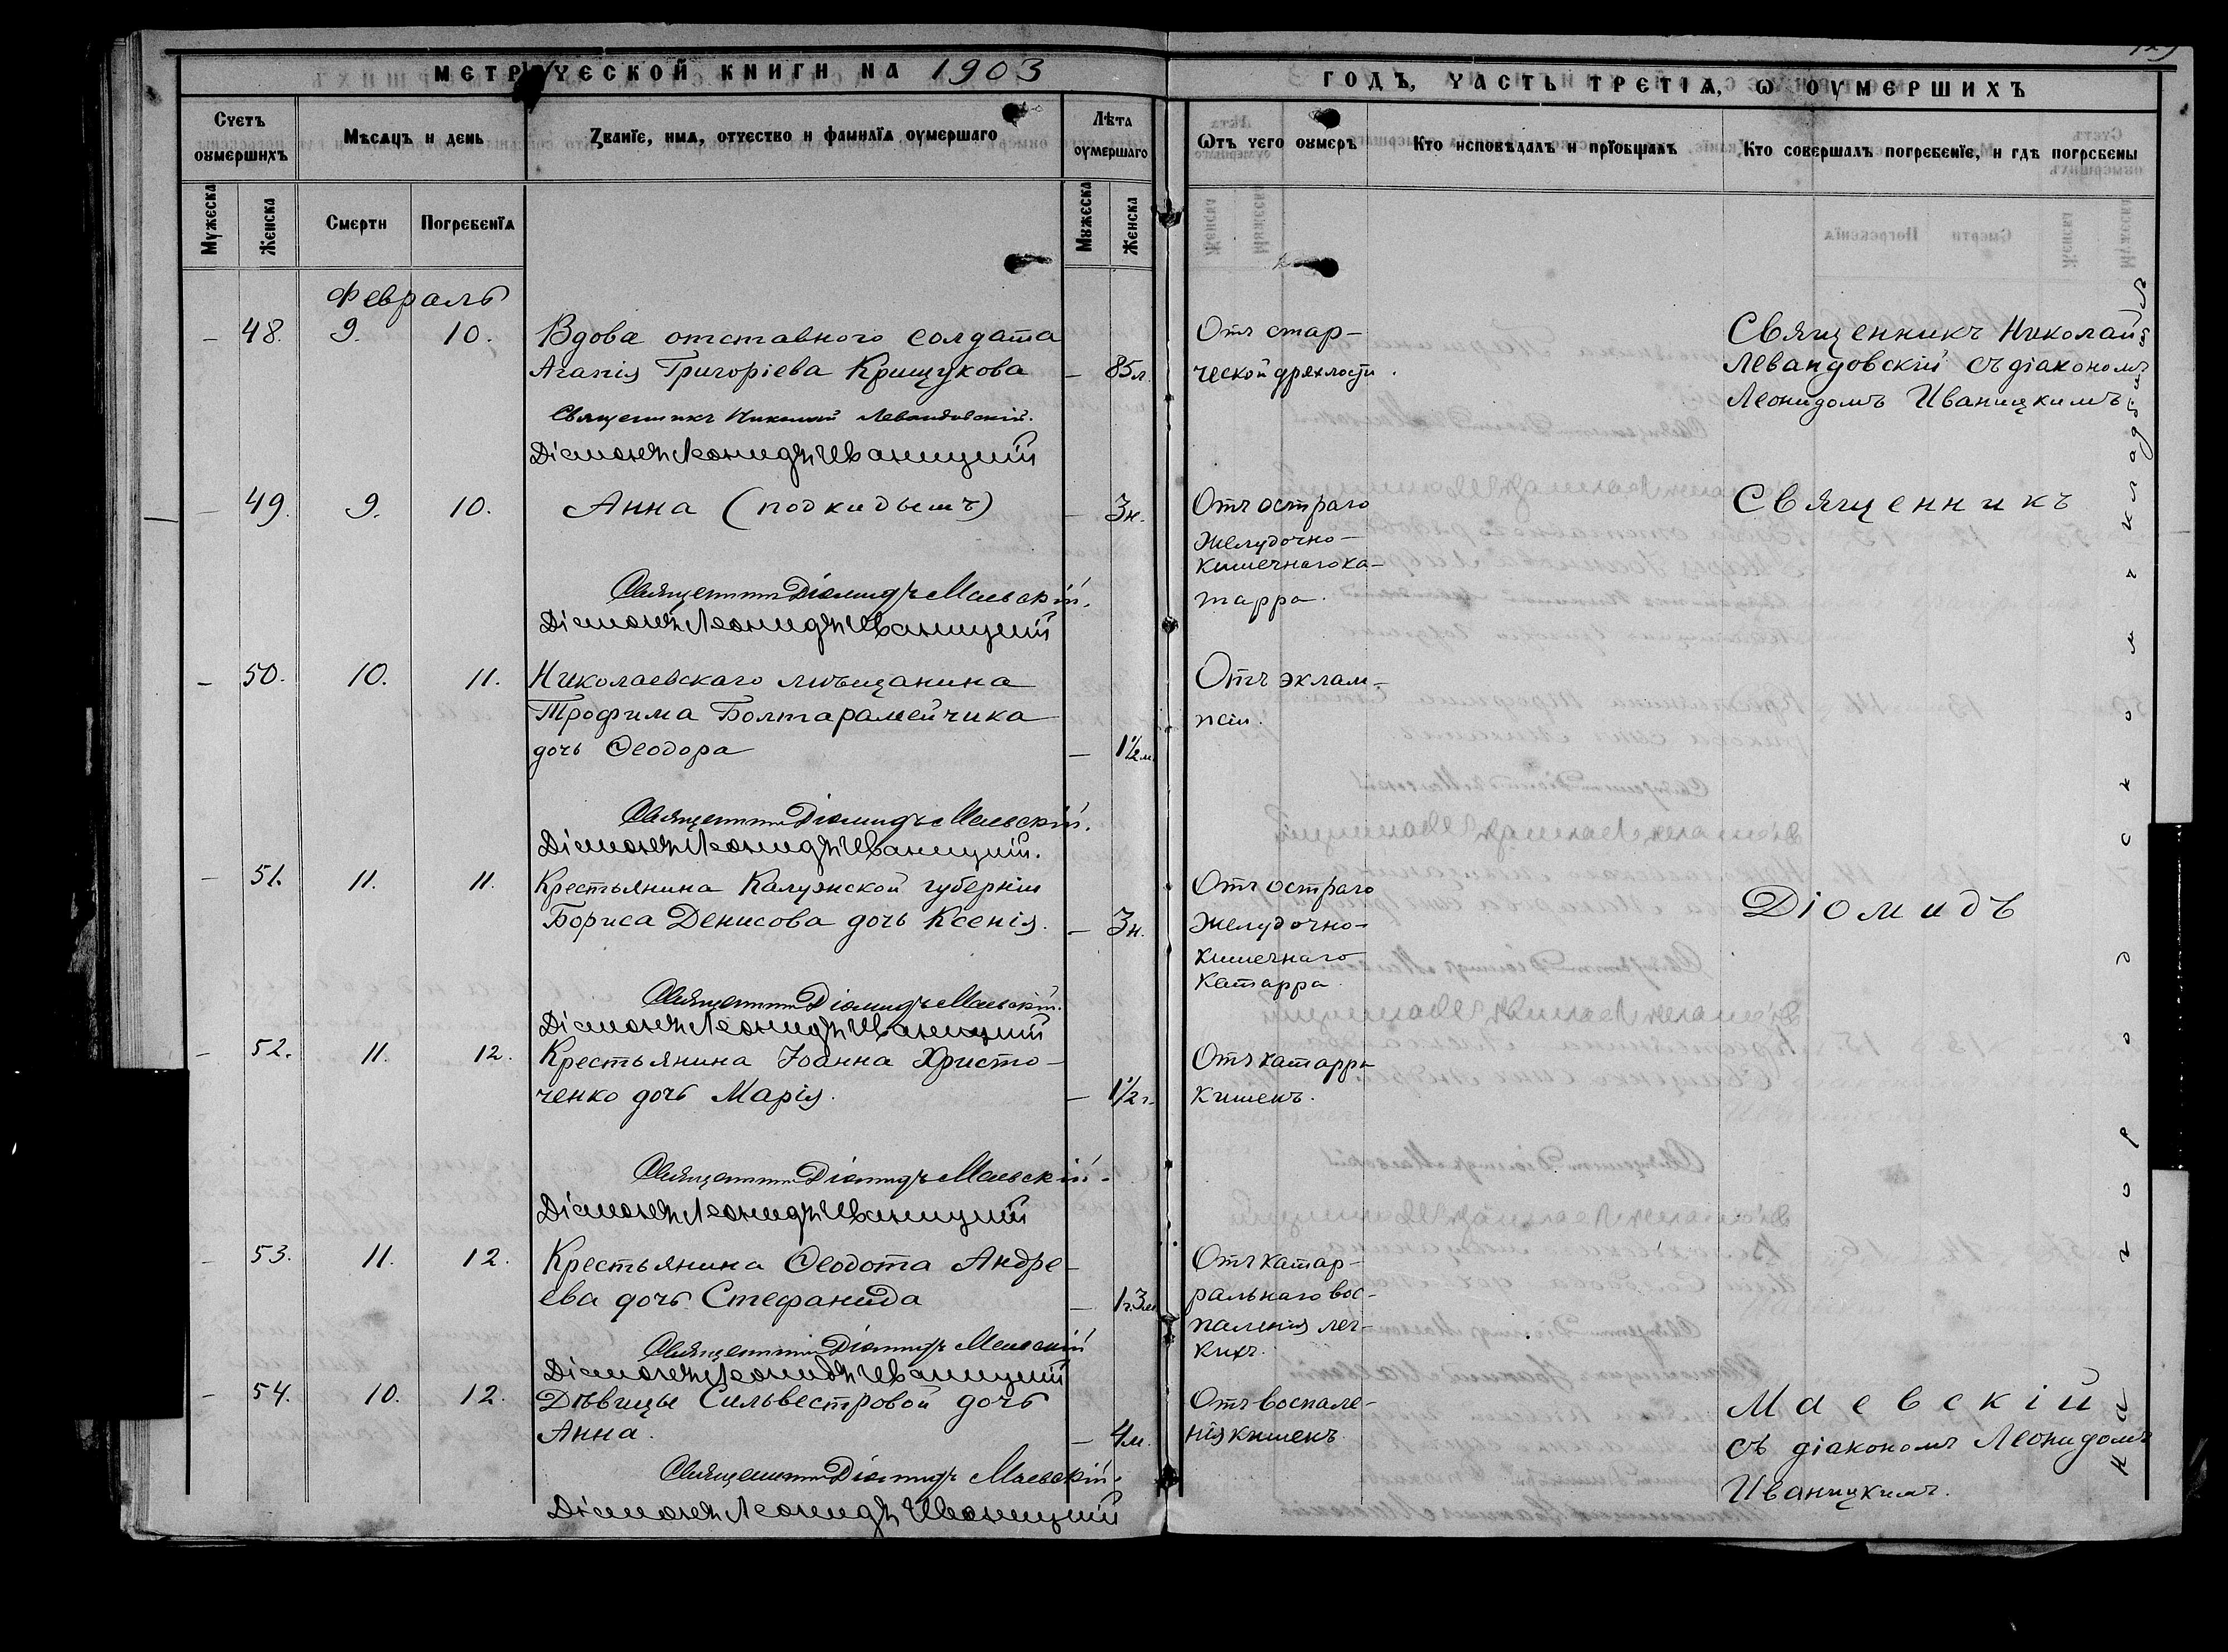 МЕТРИЧЕСКОЙ КНИГИ НА 1903
ГОДЪ, ЧАСТЬ ТРЕТІѦ, Ѡ ОУМЕРШИХЪ
Счетъ оумершихъ
Мѣсяцъ и день
Званїе, имя, отчество и фамилїя оумершаго
Лѣта оумершаго
Ѿтъ чего оумеръ
Кто исповѣдалъ и прїобщалъ
Кто совершалъ погребенїе, и гдѣ погребены
Мужеска
Женска
Смерти
Погребенїя
Мужеска
Женска
Февраль
– 48. 9. 10. Вдова отставного солдата
Агапія Григоріева Крищукова – 85 л.
Священникъ Николай Левандовскій.
Діаконъ Леонидъ Иваницкій
Отъ стар-
ческой дряхлости.
Священникъ Николай
Левандовскій съ діакономъ
Леонидомъ Иваницкимъ
– 49. 9. 10. Анна (подкидышъ) – 3н.
Священникъ Діомидъ Маевскій.
Діаконъ Леонидъ Иваницкій
Отъ остраго
желудочно-
кишечнаго ка-
тарра.
Священникъ
– 50. 10. 11. Николаевскаго мѣщанина
Трофима Болтарамейчика
дочь Ѳеодора – 1½ м.
Священникъ Діомидъ Маевскій.
Діаконъ Леонидъ Иваницкій.
Отъ эклам-
псіи.
– 51. 11. 11. Крестьянина Калужской губерніи
Бориса Денисова дочь Ксенія. – 3н.
Священникъ Діомидъ Маевскій.
Діаконъ Леонидъ Иваницкій
Отъ остраго
желудочно-
кишечнаго
катарра.
Діомидъ
– 52. 11. 12. Крестьянина Іоанна Христо-
ченко дочь Марія. – 1½ г.
Священникъ Діомидъ Маевскій.
Діаконъ Леонидъ Иваницкій
Отъ катарра
кишекъ.
– 53. 11. 12. Крестьянина Ѳеодота Андре-
ева дочь Стефанида – 1г. 3м.
Священникъ Діомидъ Маевскій
Діаконъ Леонидъ Иваницкій
Отъ катар-
ральнаго вос-
паленія лег-
кихъ.
– 54. 10. 12. Дѣвицы Сильвестровой дочь
Анна. – 4м.
Священникъ Діомидъ Маевскій.
Діаконъ Леонидъ Иваницкій
Отъ воспале-
нія кишекъ.
Маевскій
съ діакономъ Леонидомъ
Иваницкимъ.
На городскомъ кладбищѣ